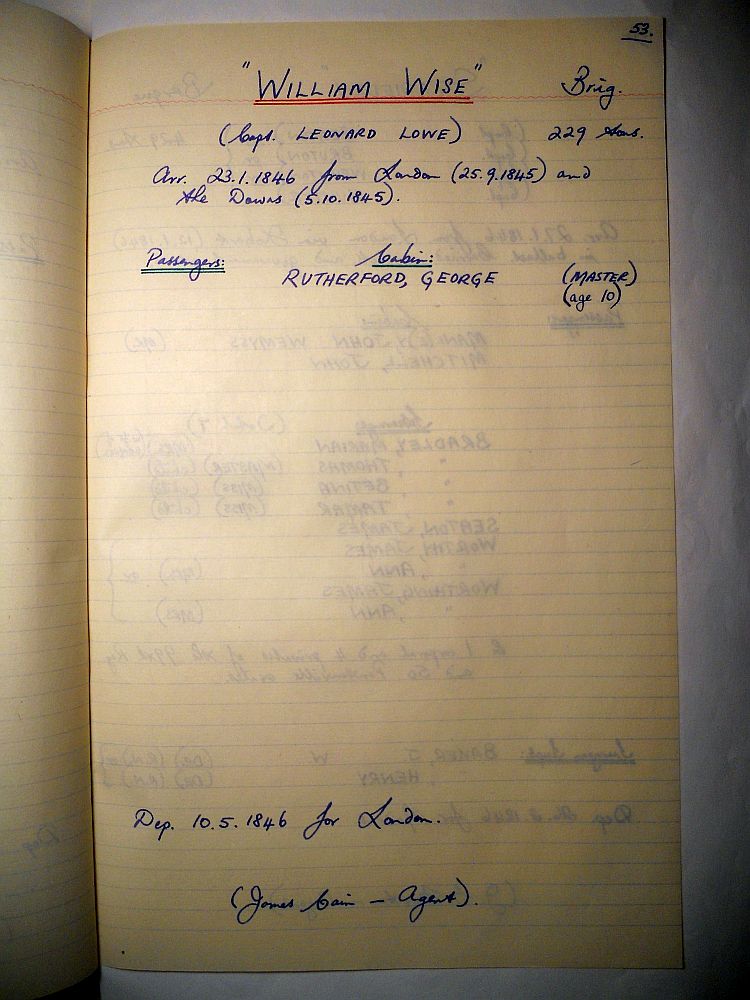 53.
"WILLIAM WISE" Brig.
(Capt. LEONARD LOWE) 229 tons.
Arr. 23.1.1846 from London (25.9.1845) and
the Downs (5.10.1845).
Passengers: Cabin:
RUTHERFORD, GEORGE (MASTER)
(age 10)
Dep. 10.5.1846 for London.
(James Cain – Agent).